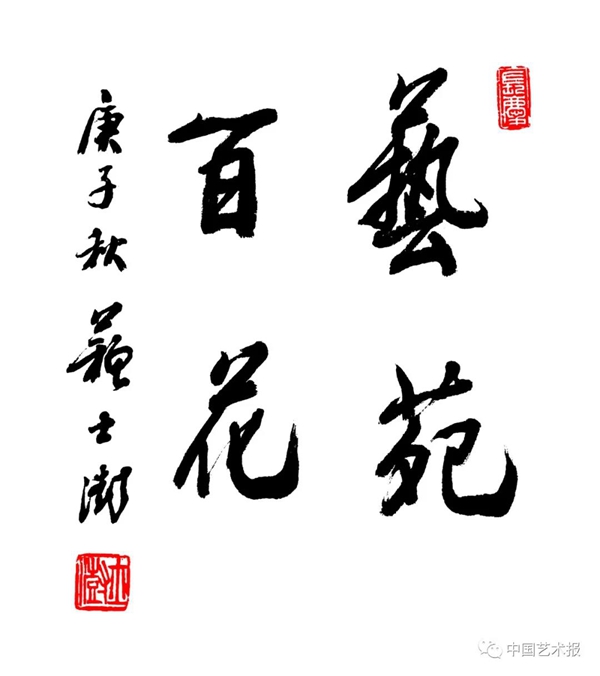 藝苑
百花
庚子秋 蘇士澍
士澍
中国艺术报